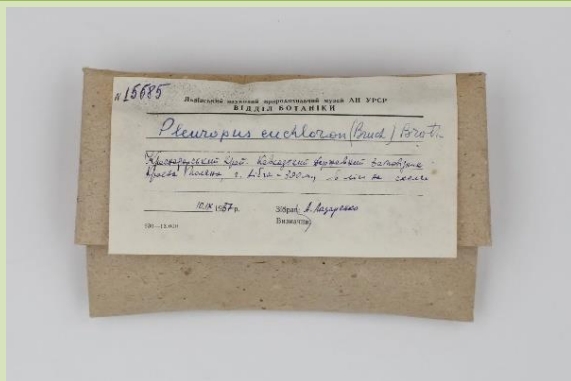 № 15685
Львівський науковий природознавчий музей АН УРСР
ВІДДІЛ БОТАНІКИ
Pleuropus euchloron (Bruch) Broth.
Краснодарський край. Кавказький державний заповідник
Красна Поляна, г. 300 м, в лісі на скелі
10.IX 1957 р. Зібрав А. Лазаренко
Визначив